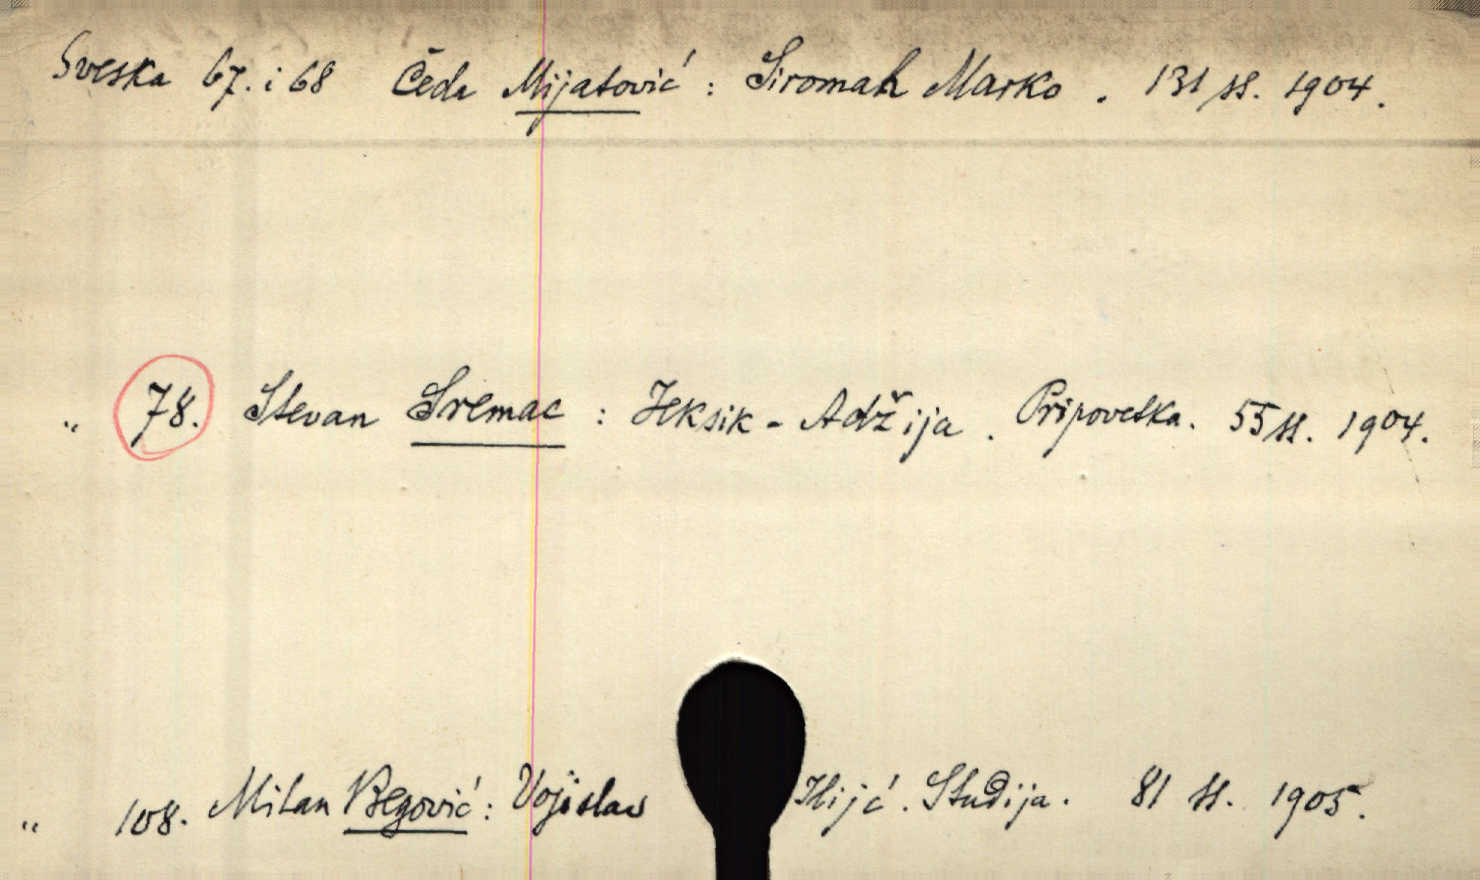 Sveska 67. i 68 Čeda Mijatović : Siromah Marko . 131 ss. 1904.
„ 78. Stevan Sremac : Jeksik - Adžija . Pripovetka. 55 ss. 1904.
„ 108. Milan Begović : Vojislav Ilijć . Studija . 81 ss. 1905.